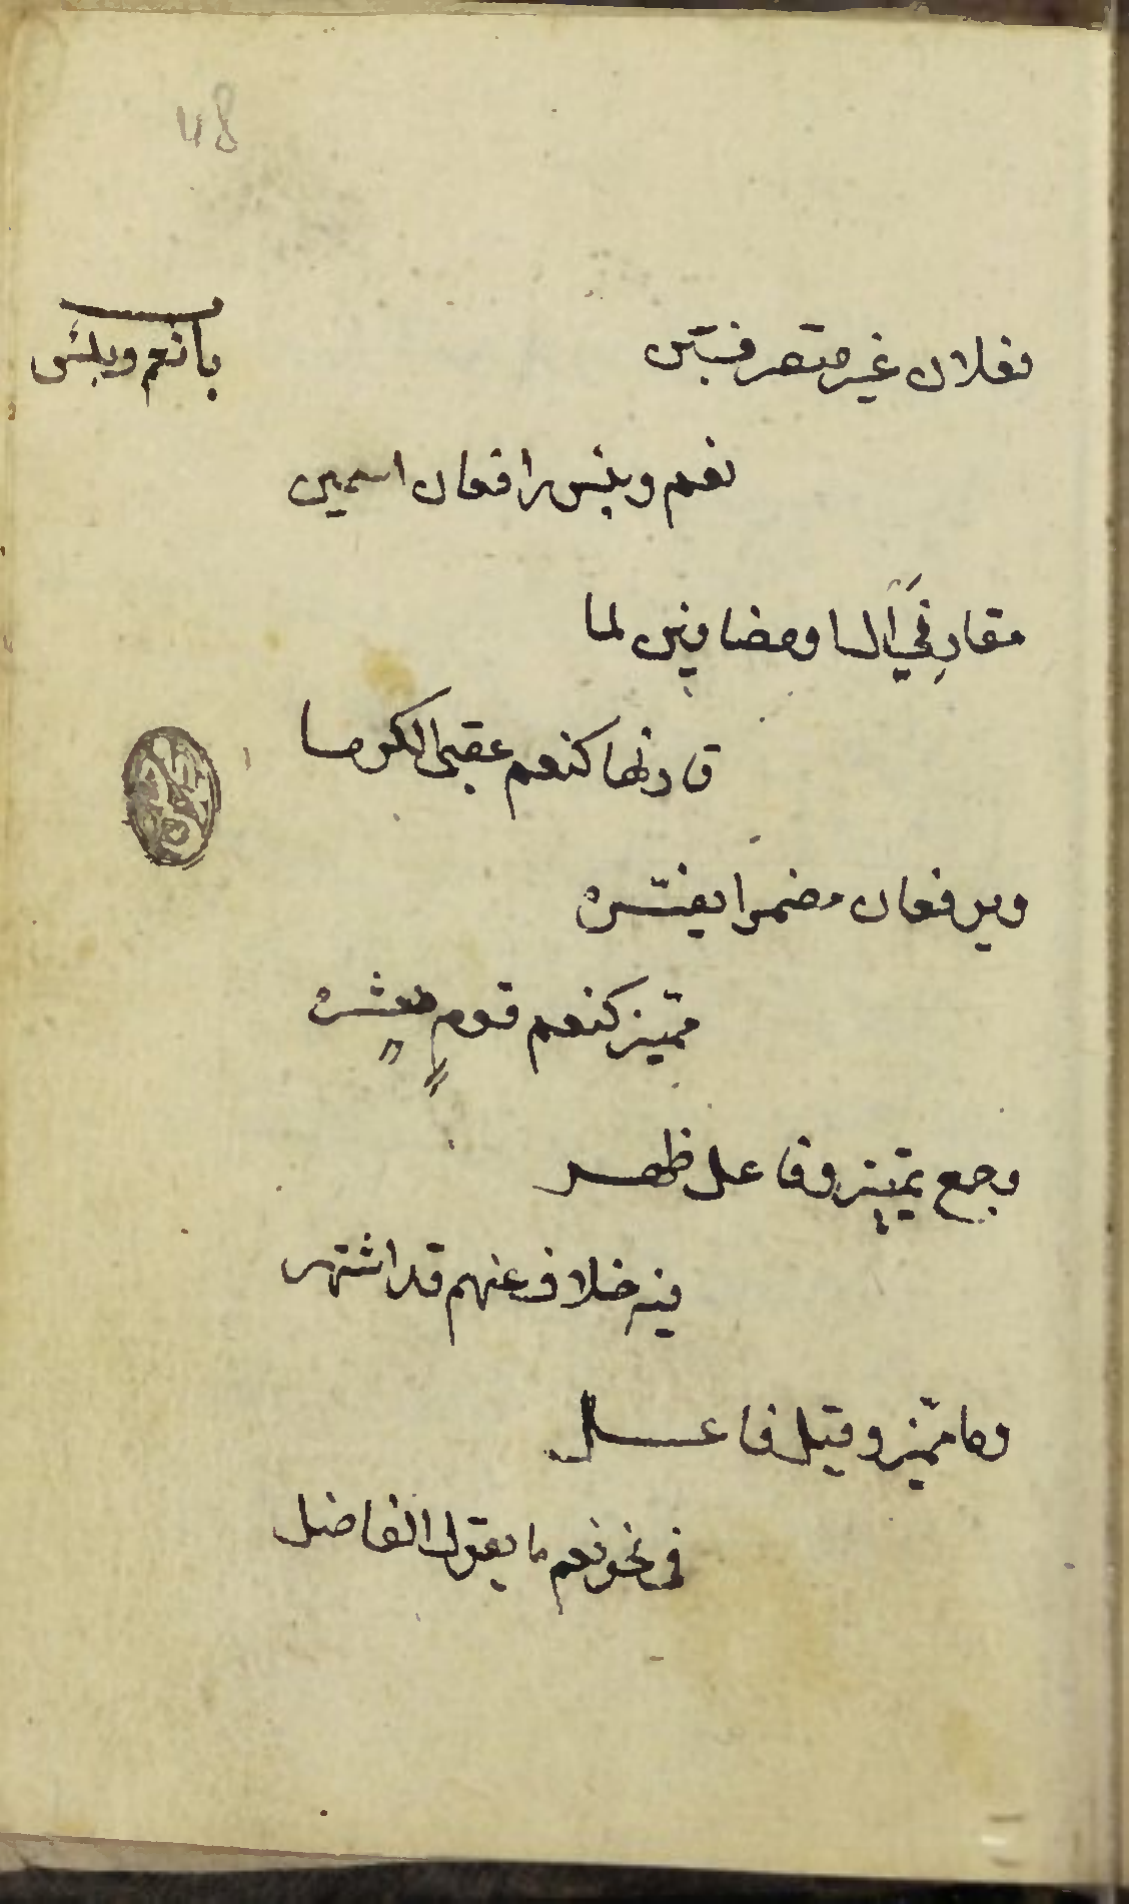 48
باب نعم وبئس
فعلان غير متصرفين
نعم وبئس رافعان اسمين
مقارني ال او مضافين لما
قارنها كنعم عقبى الكرما
ويرفعان مضمرا يفسّره
مميّز كنعم قومٍ معشره
وجمع تمييز وفاعل ظهر
فيه خلاف عنهم قد اشتهر
وما مميّز وقيل فاعل
فى نحو نعم ما يقول الفاضل